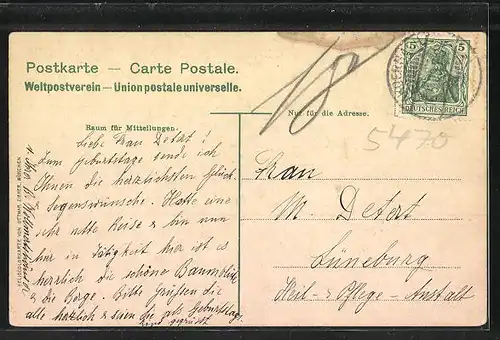 Postkarte — Carte Postale.
Weltpostverein — Union postale universelle.
Nur für die Adresse.
Raum für Mittellungen.
5
5
DEUTSCHES REICH
5470
Liebe Frau Detert!
Zum Geburtstage sende ich
Ihnen die herzlichsten Glück-
Segenswünsche. Hatte eine
sehr nette Reise & bin nun
hier in Tätigkeit hier ist es
herrlich die schöne Baumblüte
& die Berge. Bitte grüssen Sie
alle herzlich & seien Sie als Geburtstag
gegrüsst
Frau
M. Detert
Lüneburg
Heil- & Pflege-Anstalt